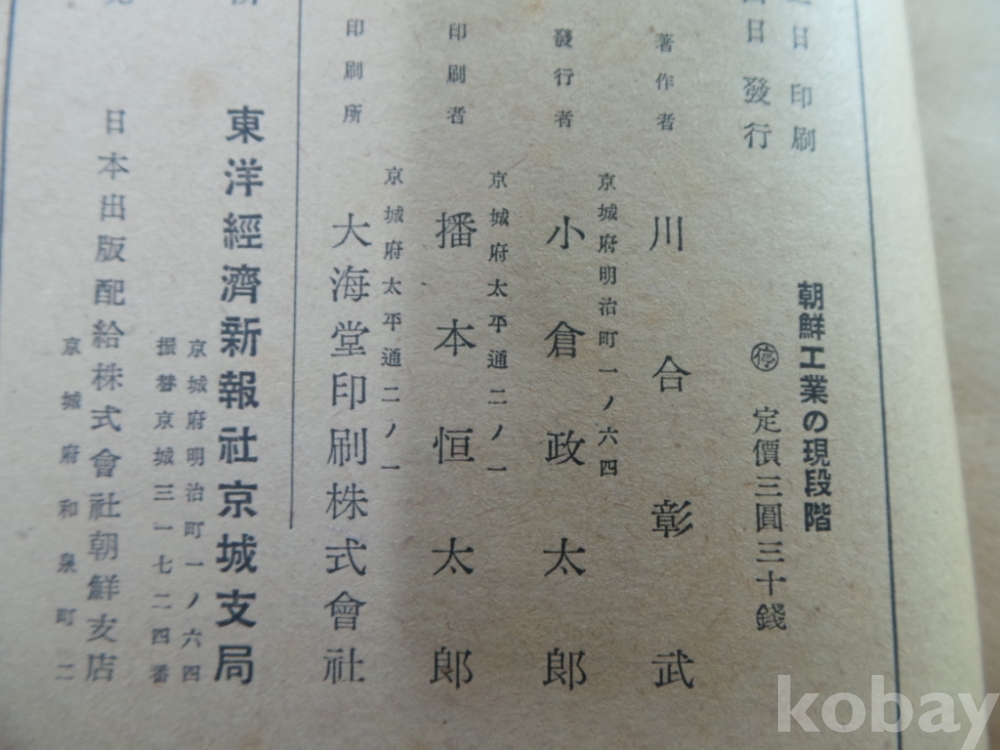 日印刷
日發行
朝鮮工業の現段階
㊡定價三圓三十錢
著作者 川合彰武
京城府明治町一ノ六四
發行者 小倉政太郎
京城府太平通二ノ一
印刷者 播本恒太郎
京城府太平通二ノ一
印刷所 大海堂印刷株式會社
東洋經濟新報社京城支局
京城府明治町一ノ六四
振替京城三一七二四番
日本出版配給株式會社朝鮮支店
京城府和泉町二
kobay